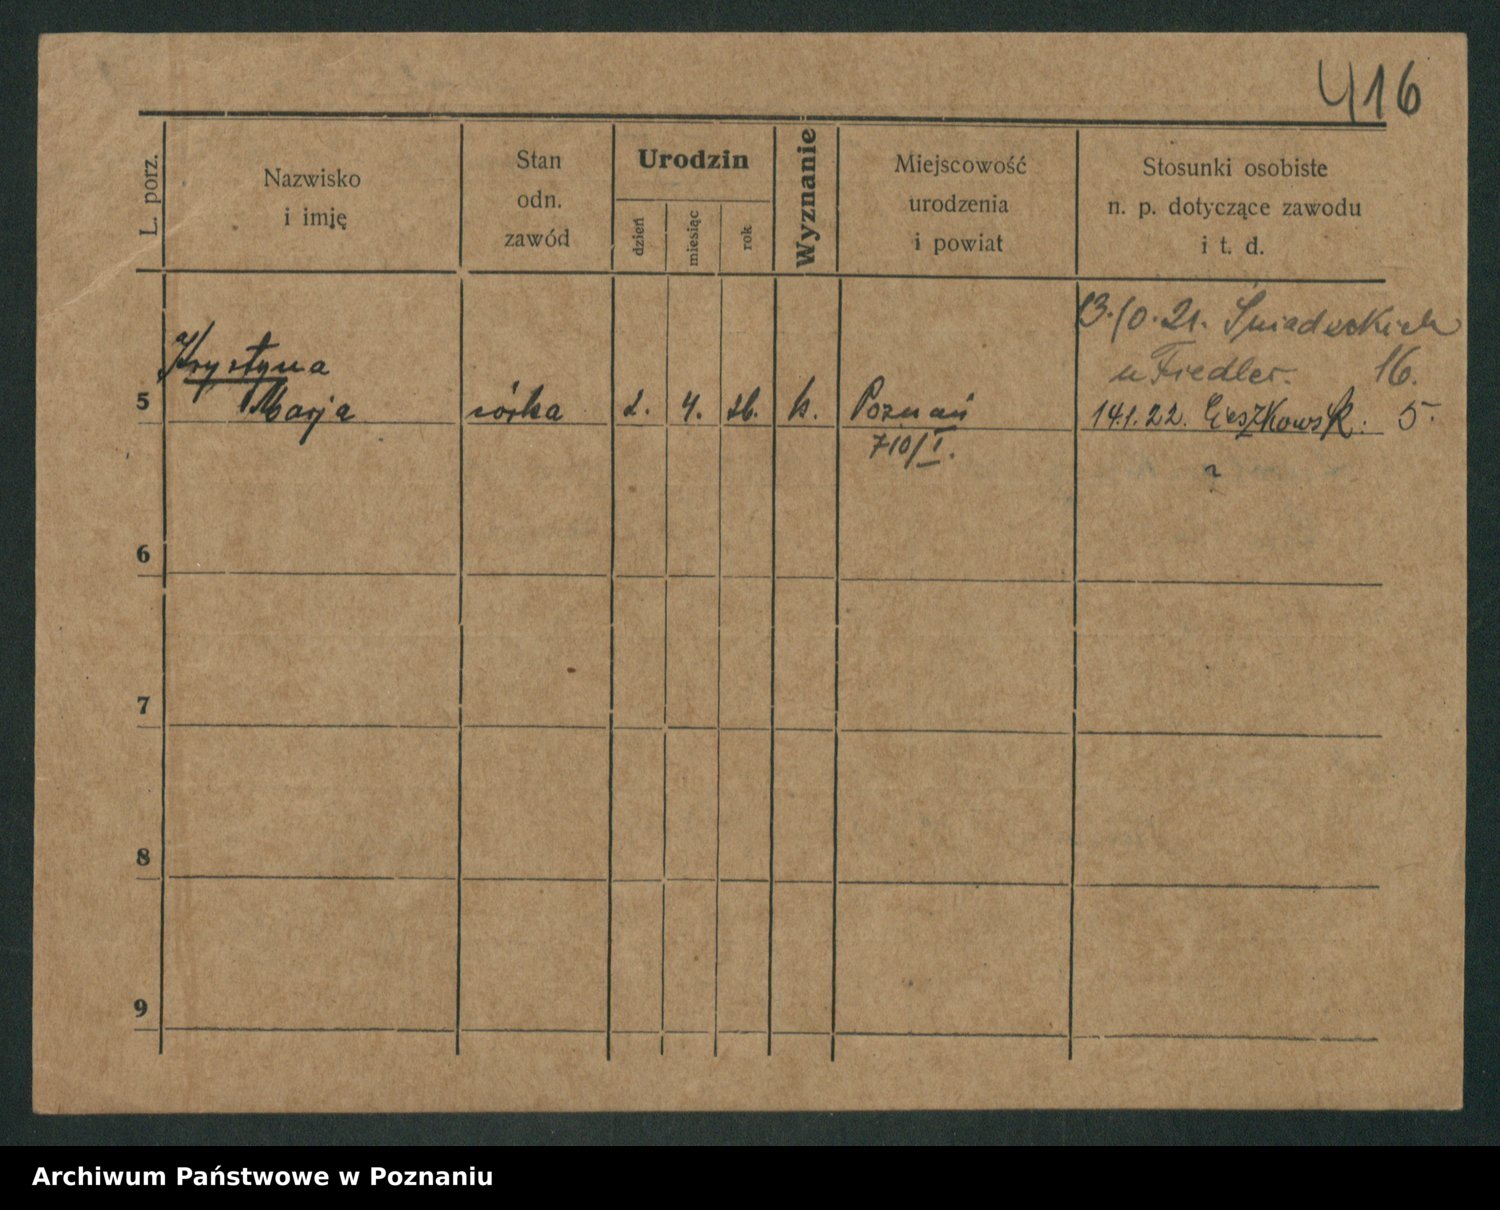 416
L. porz.
Nazwisko
i imię
Stan
odn.
zawód
Urodzin
dzień
miesiąc
rok
Wyznanie
Miejscowość
urodzenia
i powiat
Stosunki osobiste
n. p. dotyczące zawodu
i t. d.
13.10.21. Śniadeckich
u Fiedler. 16.
Krystyna
5 Marja córka 2. 4. 26. k. Poznań 14.1.22. Cieszkowsk. 5.
710/I.
6
7
8
9
Archiwum Państwowe w Poznaniu